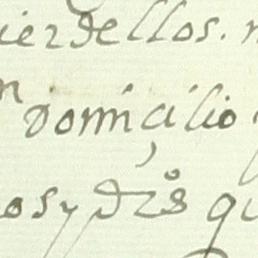 ier de llos.
n domiçilio
os y dr̃os qu